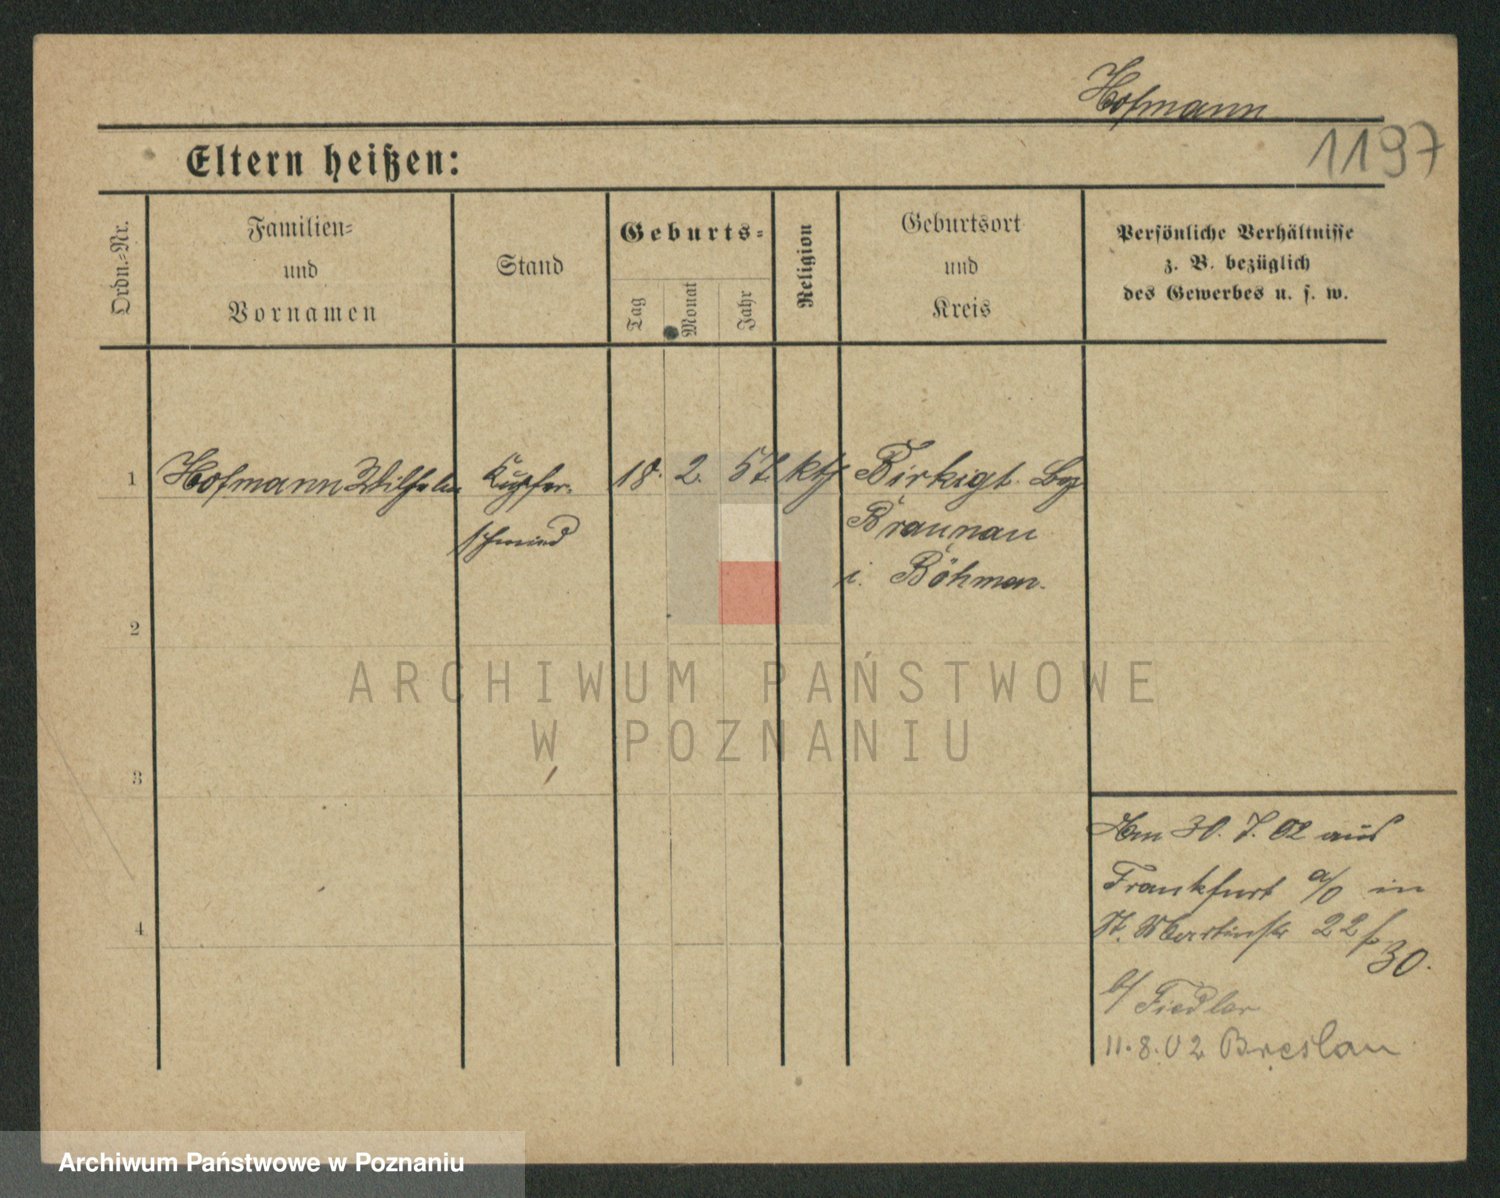 Hofmann
1197
Eltern heißen:
Ordn.-Nr.
Familien-
und
Vornamen
Stand
Geburts-
Tag
Monat
Jahr
Religion
Geburtsort
und
Kreis
Persönliche Verhältnisse
z. B. bezüglich
des Gewerbes u. s. w.
1 Hofmann Wilhelm Kupfer- 18. 2. 57. kth Birkigt. Bez
schmied Braunau
i. Böhmen.
2
ARCHIWUM PAŃSTWOWE
W POZNANIU
3
Am 30. 7. 02 aus
Frankfurt a/O in
4 St. Martinstr 22
30.
b/ Fiedler
11.8.02 Breslau
Archiwum Państwowe w Poznaniu